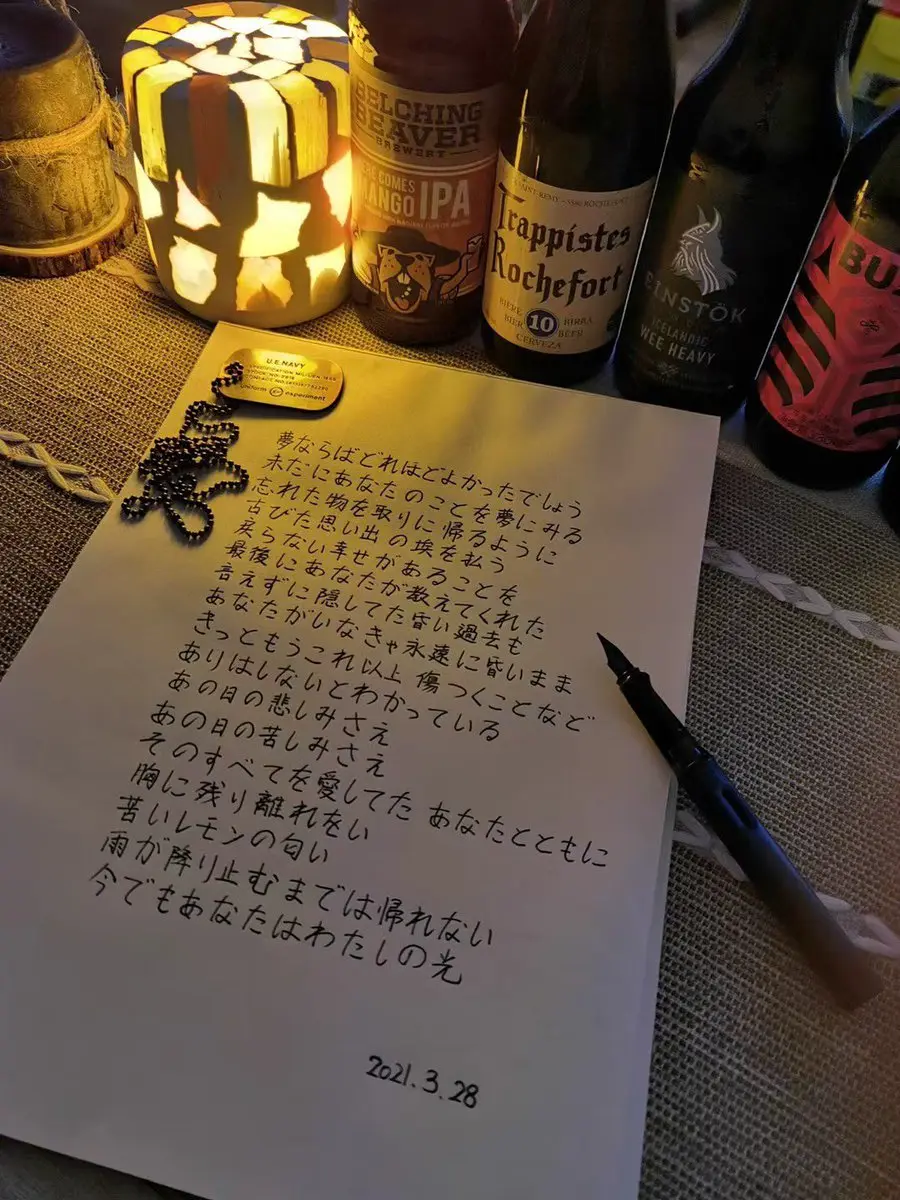 BELCHING
BEAVER
BREWERY
COMES
MANGO IPA
Trappistes
Rochefort
BIÈRE BIRRA
BIER 10 BEER
CERVEZA
EINSTÖK
ICELANDIC
WEE HEAVY
BU
U.E.NAVY
uniform experiment
夢ならばどれほどよかったでしょう
未だにあなたのことを夢にみる
忘れた物を取りに帰るように
古びた思い出の埃を払う
戻らない幸せがあることを
最後にあなたが教えてくれた
言えずに隠してた昏い過去も
あなたがいなきゃ永遠に昏いまま
きっともうこれ以上 傷つくことなど
ありはしないとわかっている
あの日の悲しみさえ
あの日の苦しみさえ
そのすべてを愛してた あなたとともに
胸に残り離れをい
苦いレモンの匂い
雨が降り止むまでは帰れない
今でもあなたはわたしの光
2021.3.28